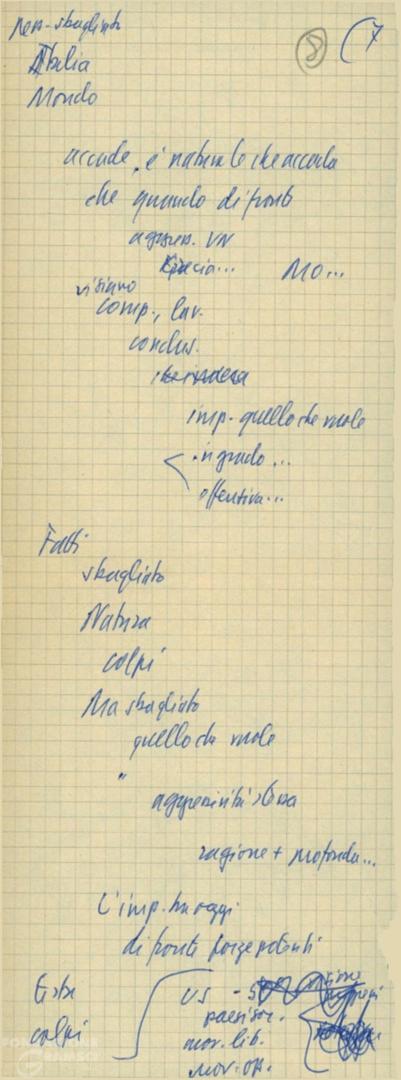 Non-sbagliato
8 7
Italia
Mondo
accade, è naturale che accada
che quando di fronte
aggress. VN
Grecia... MO...
visiamo
comp., lav.
conclus.
imp. quello che vuole
in grado...
offensiva...
Fatti
sbagliato
Natura
colpi
Ma sbagliato
quello che vuole
"
aggressività stessa
ragione + profonda...
L'imp. ha oggi
di fronte forze potenti
Esta
colpi
US -
paesi soc.
mov. lib.
mov. op.